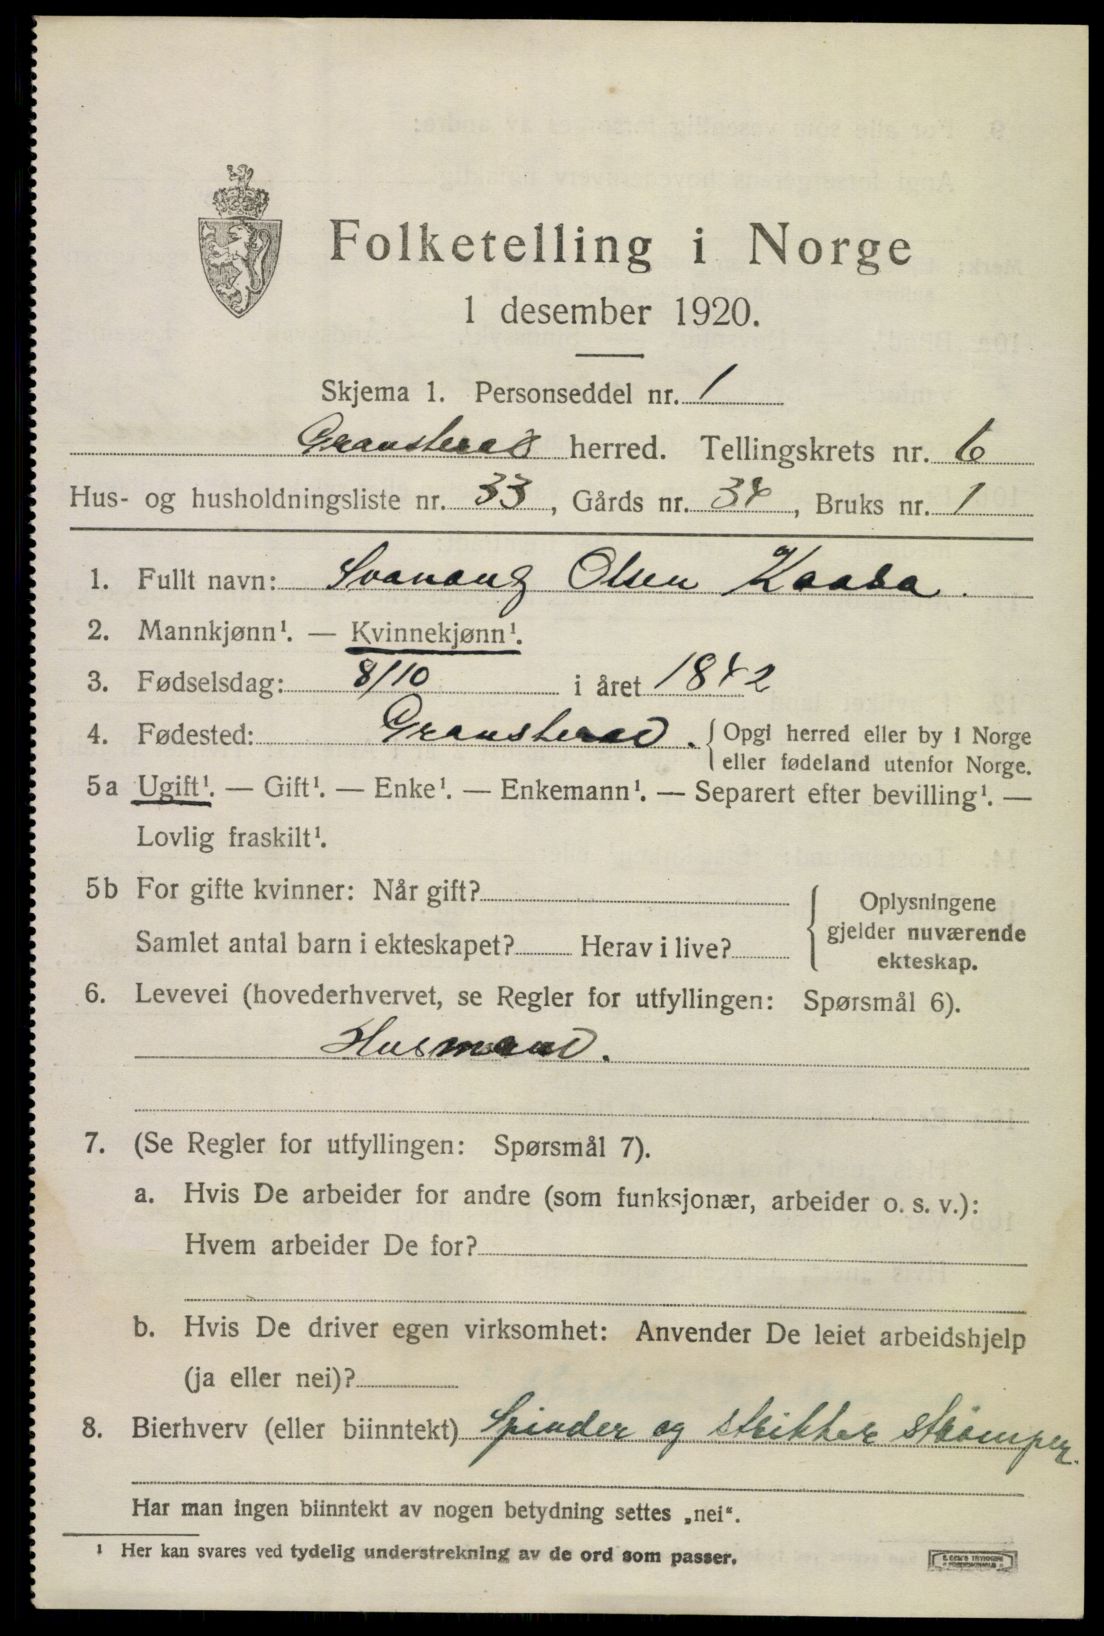 Folketelling i Norge
1 desember 1920.
Skjema 1. Personseddel nr. 1
Gransherad herred. Tellingskrets nr. 6
Hus- og husholdningsliste nr. 33, Gårds nr. 34, Bruks nr. 1
1. Fullt navn: Svanaug Olsen Kaasa.
2. Mannkjønn¹. — Kvinnekjønn¹.
3. Fødselsdag: 8/10 i året 1842
4. Fødested: Gransherad. { Opgi herred eller by i Norge
eller fødeland utenfor Norge.
5a Ugift¹. — Gift¹. — Enke¹. — Enkemann¹. — Separert efter bevilling¹. —
Lovlig fraskilt¹.
5b For gifte kvinner: Når gift?
Samlet antal barn i ekteskapet? Herav i live?
{ Oplysningene
gjelder nuværende
ekteskap.
6. Levevei (hovederhvervet, se Regler for utfyllingen: Spørsmål 6).
Husmand.
7. (Se Regler for utfyllingen: Spørsmål 7).
a. Hvis De arbeider for andre (som funksjonær, arbeider o. s. v.):
Hvem arbeider De for?
b. Hvis De driver egen virksomhet: Anvender De leiet arbeidshjelp
(ja eller nei)?
8. Bierhverv (eller biinntekt) Spinder og strikker Strømper.
Har man ingen biinntekt av nogen betydning settes „nei“.
¹ Her kan svares ved tydelig understrekning av de ord som passer.